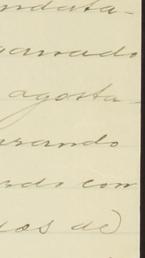 ndata-
ganado
agosta-
urando
ado con
os de